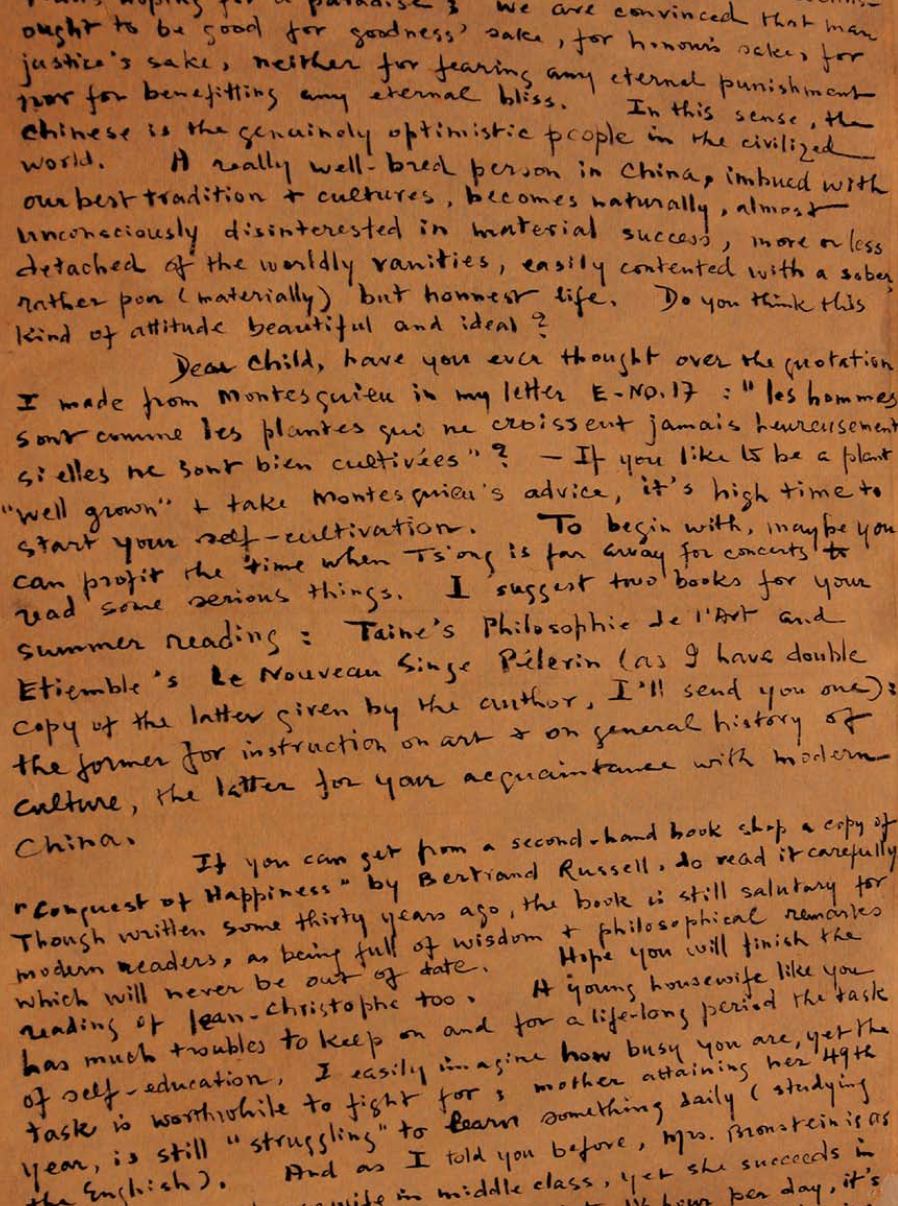 hoping for a paradise; we are convinced that man
ought to be good for goodness' sake, for honour's sake, for
justice's sake, neither for fearing any eternal punishment
nor for benefitting any eternal bliss. In this sense, the
Chinese is the genuinely optimistic people in the civilized
world. A really well-bred person in China, imbued with
our best tradition + cultures, becomes naturally, almost
unconsciously disinterested in material success, more or less
detached of the worldly vanities, easily contented with a sober,
rather poor (materially) but honnest life. Do you think this
kind of attitude beautiful and ideal?
Dear Child, have you ever thought over the quotation
I made from Montesquieu in my letter E-NO.17 : "les hommes
sont comme les plantes qui ne croissent jamais heureusement
si elles ne sont bien cultivées"? — If you like to be a plant
"well grown" + take Montesquieu's advice, it's high time to
start your self-cultivation. To begin with, maybe you
can profit the time when Ts'ong is far away for concerts to
read some serious things. I suggest two books for your
summer reading : Taine's Philosophie de l'Art and
Etiemble's Le Nouveau Singe Pélerin (as I have double
copy of the latter given by the author, I'll send you one):
the former for instruction on art + on general history of
culture, the latter for your acquaintance with modern
China.
If you can get from a second-hand book shop a copy of
"Conquest of Happiness" by Bertrand Russell, do read it carefully
Though written some thirty years ago, the book is still salutary for
modern readers, as being full of wisdom + philosophical remarks
which will never be out of date. Hope you will finish the
reading of Jean-Christophe too. A young housewife like you
has much troubles to keep on and for a life-long period the task
of self-education, I easily imagine how busy you are, yet the
task is worthwhile to fight for; mother attaining her 49th
year, is still "struggling" to learn something daily (studying
the English). And as I told you before, Mrs. Bronstein is as
in middle class, yet she succeeds in
hour per day, it's